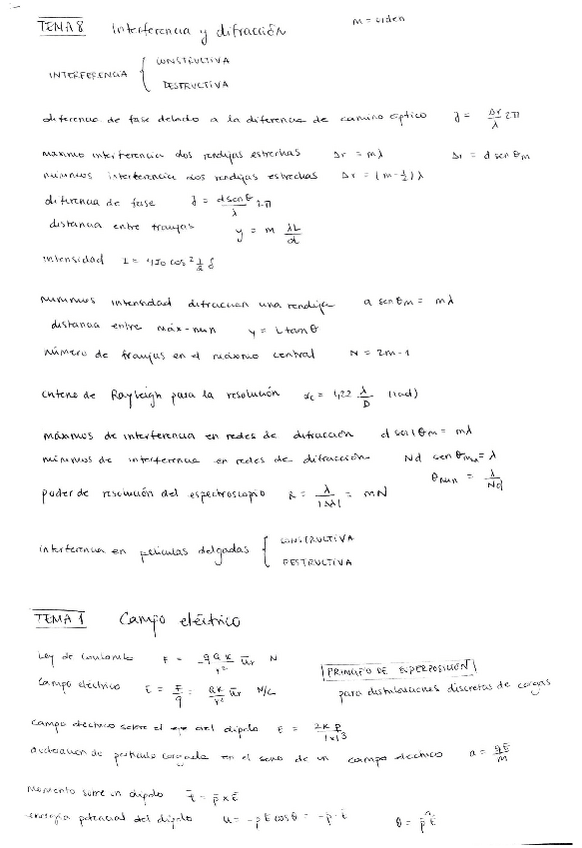 TEMA 8 Interferencia y difracción m = orden
INTERFERENCIA { CONSTRUCTIVA
DESTRUCTIVA
diferencia de fase debado a la diferencia de camino óptico δ = Δr/λ 2π
máximo interferencia dos rendijas estrechas Δr = mλ Δr = d sen θm
mínimos interferencia dos rendijas estrechas Δr = (m-½)λ
diferencia de fase δ = d senθ/λ 2π
distancia entre franjas y = m λL/d
intensidad I = 4I0 cos² ½ δ
mínimos intensidad difracción una rendija a sen θm = mλ
distancia entre máx-min y = L tan θ
número de franjas en el máximo central N = 2m-1
criterio de Rayleigh para la resolución αc = 1,22 λ/D (rad)
máximos de interferencia en redes de difracción d sen θm = mλ
mínimos de interferencia en redes de difracción Nd sen θmin = λ
θmin = λ/Nd
poder de resolución del espectroscopio R = λ/|Δλ| = mN
interferencia en películas delgadas { CONSTRUCTIVA
DESTRUCTIVA
TEMA 1 Campo eléctrico
Ley de Coulomb F = qQK/r² ūr N
PRINCIPIO DE SUPERPOSICIÓN
Campo eléctrico E = F/q = QK/r² ūr N/C para distribuciones discretas de cargas
Campo eléctrico sobre el eje del dipolo E = 2Kp/|x|³
aceleración de partícula cargada en el seno de un campo eléctrico a = qE/m
Momento sobre un dipolo τ̄ = p̄ x Ē
energía potencial del dipolo U = -pE cosθ = -p̄·Ē θ = p̄^Ē